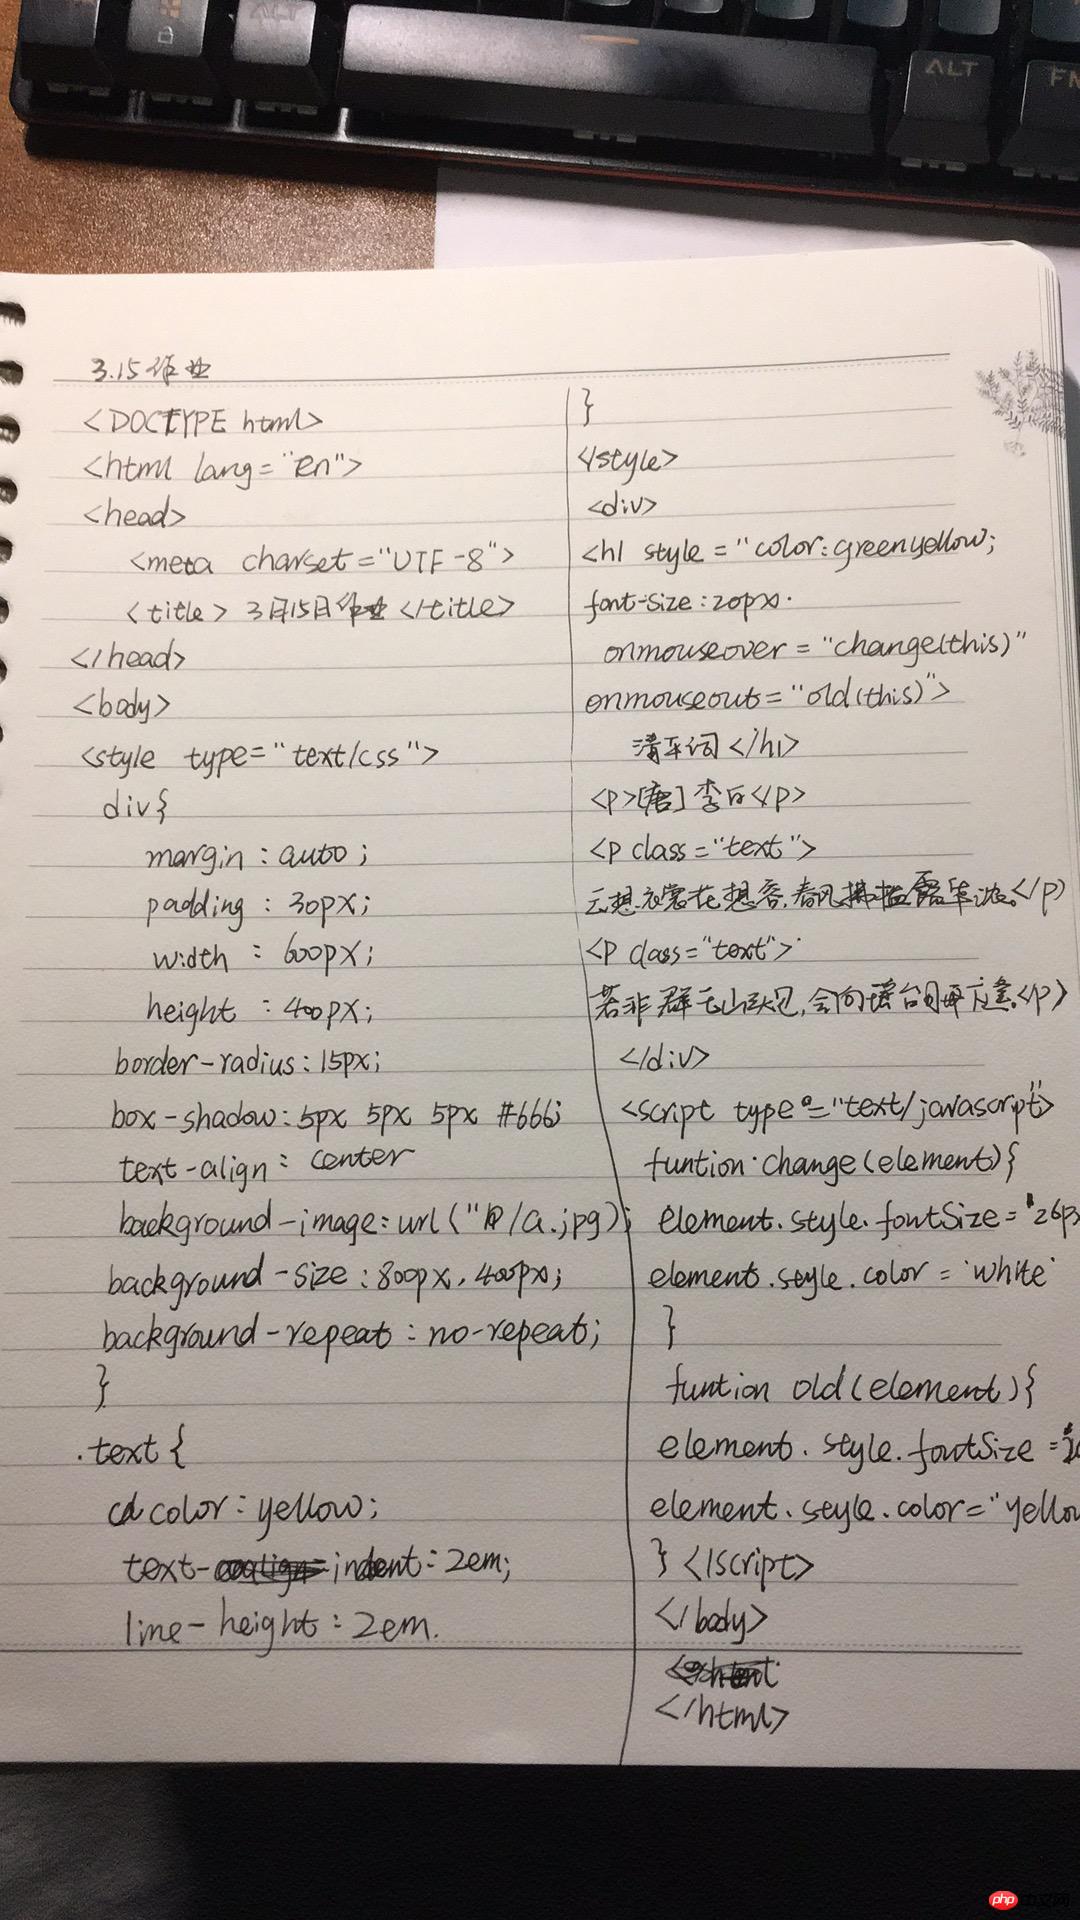 3.15作业
<DOCTYPE html>
<html lang="en">
<head>
<meta charset="UTF-8">
<title>3月15日作业</title>
</head>
<body>
<style type="text/css">
div{
margin:auto;
padding:30px;
width:600px;
height:400px;
border-radius:15px;
box-shadow:5px 5px 5px #666;
text-align:center
background-image:url("/a.jpg);
background-size:800px,400px;
background-repeat:no-repeat;
}
.text{
color:yellow;
text-indent:2em;
line-height:2em.
}
</style>
<div>
<h1 style="color:greenyellow;
font-size:20px.
onmouseover="change(this)"
onmouseout="old(this)">
清平词</h1>
<p>[唐]李白</p>
<p class="text">
云想衣裳花想容,春风拂槛露华浓。</p>
<p class="text">
若非群玉山头见,会向瑶台月下逢。</p>
</div>
<script type="text/javascript">
funtion change(element){
element.style.fontSize='26p
element.style.color='white'
}
funtion old(element){
element.style.fontSize='20
element.style.color='yellow
}</script>
</body>
</html>
ALT
ALT
FN
D
php